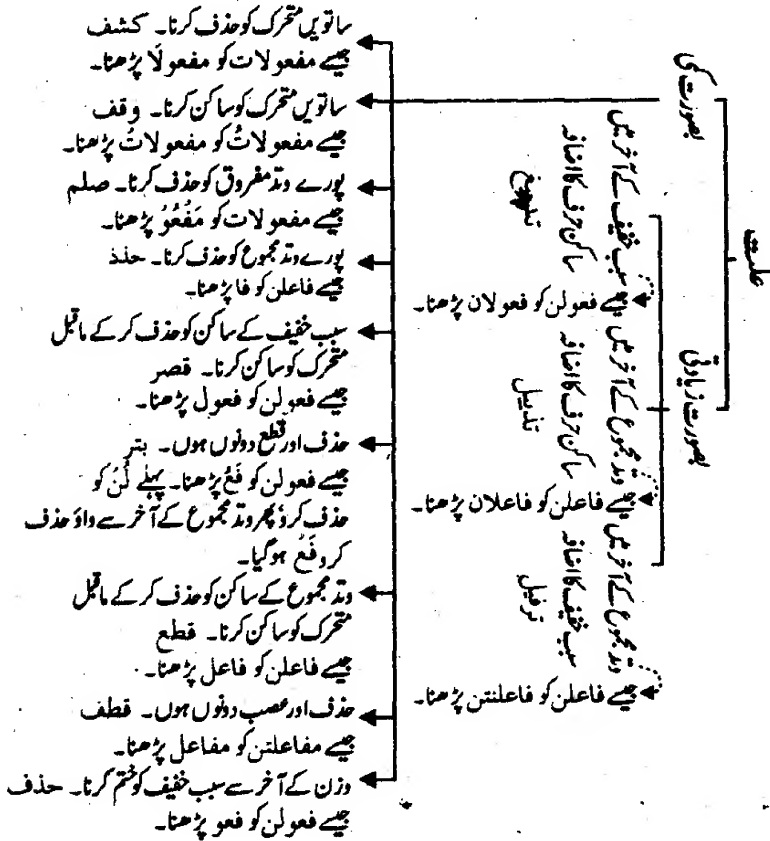 علت
بصورت کمی
ساتویں متحرک کو حذف کرنا۔ کشف
جیسے مفعولات کو مفعولَا پڑھنا۔
ساتویں متحرک کو ساکن کرنا۔ وقف
جیسے مفعولاتُ کو مفعولاتْ پڑھنا۔
پورے وتد مفروق کو حذف کرنا۔ صلم
جیسے مفعولات کو مَفْعُوْ پڑھنا۔
پورے وتد مجموع کو حذف کرنا۔ حذذ
جیسے فاعلن کو فا پڑھنا۔
سبب خفیف کے ساکن کو حذف کر کے ماقبل
متحرک کو ساکن کرنا۔ قصر
جیسے فعولن کو فعول پڑھنا۔
حذف اور قطع دونوں ہوں۔ بتر
جیسے فعولن کو فَعْ پڑھنا۔ پہلے لُنْ کو
حذف کرو پھر وتد مجموع کے آخر سے واؤ حذف
کرو فَعْ ہوگیا۔
وتد مجموع کے ساکن کو حذف کر کے ماقبل
متحرک کو ساکن کرنا۔ قطع
جیسے فاعلن کو فاعل پڑھنا۔
حذف اور عصب دونوں ہوں۔ قطف
جیسے مفاعلتن کو مفاعل پڑھنا۔
وزن کے آخر سے سبب خفیف کو ختم کرنا۔ حذف
جیسے فعولن کو فعو پڑھنا۔
بصورت زیادتی
سبب خفیف کے آخر میں
ساکن حرف کا اضافہ
جیسے فعولن کو فعولان پڑھنا۔
وتد مجموع کے آخر میں
ساکن حرف کا اضافہ
تذییل
جیسے فاعلن کو فاعلان پڑھنا۔
وتد مجموع کے آخر میں
سبب خفیف کا اضافہ
ترفیل
جیسے فاعلن کو فاعلنتن پڑھنا۔